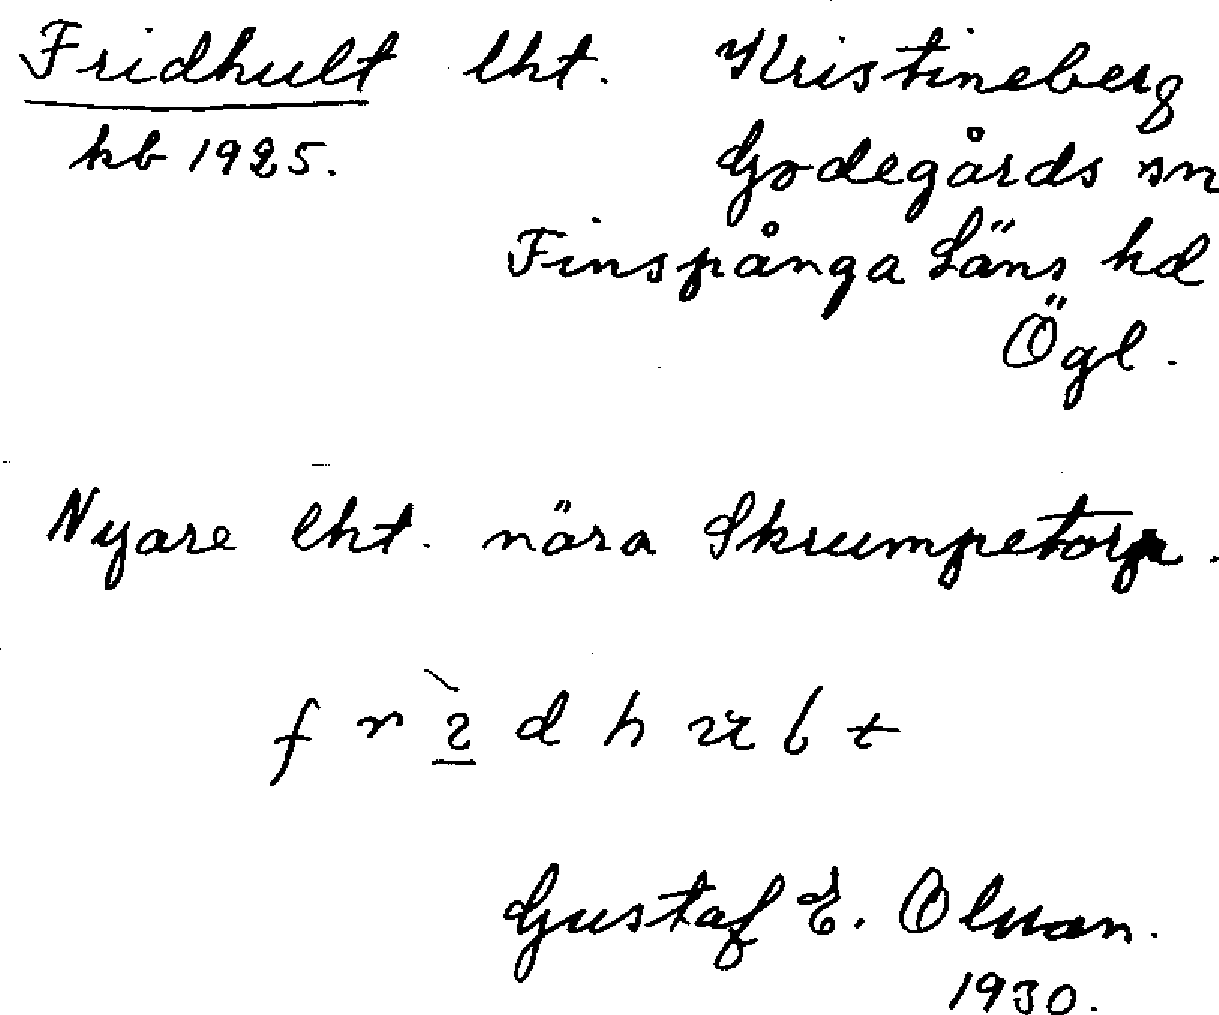 Fridhult lht. Kristineberg
kb 1925. Godegårds sn
Finspånga Läns hd
Ögl.
Nyare lht. nära Skrumpetorp.
Gustaf E. Olsson.
1930.